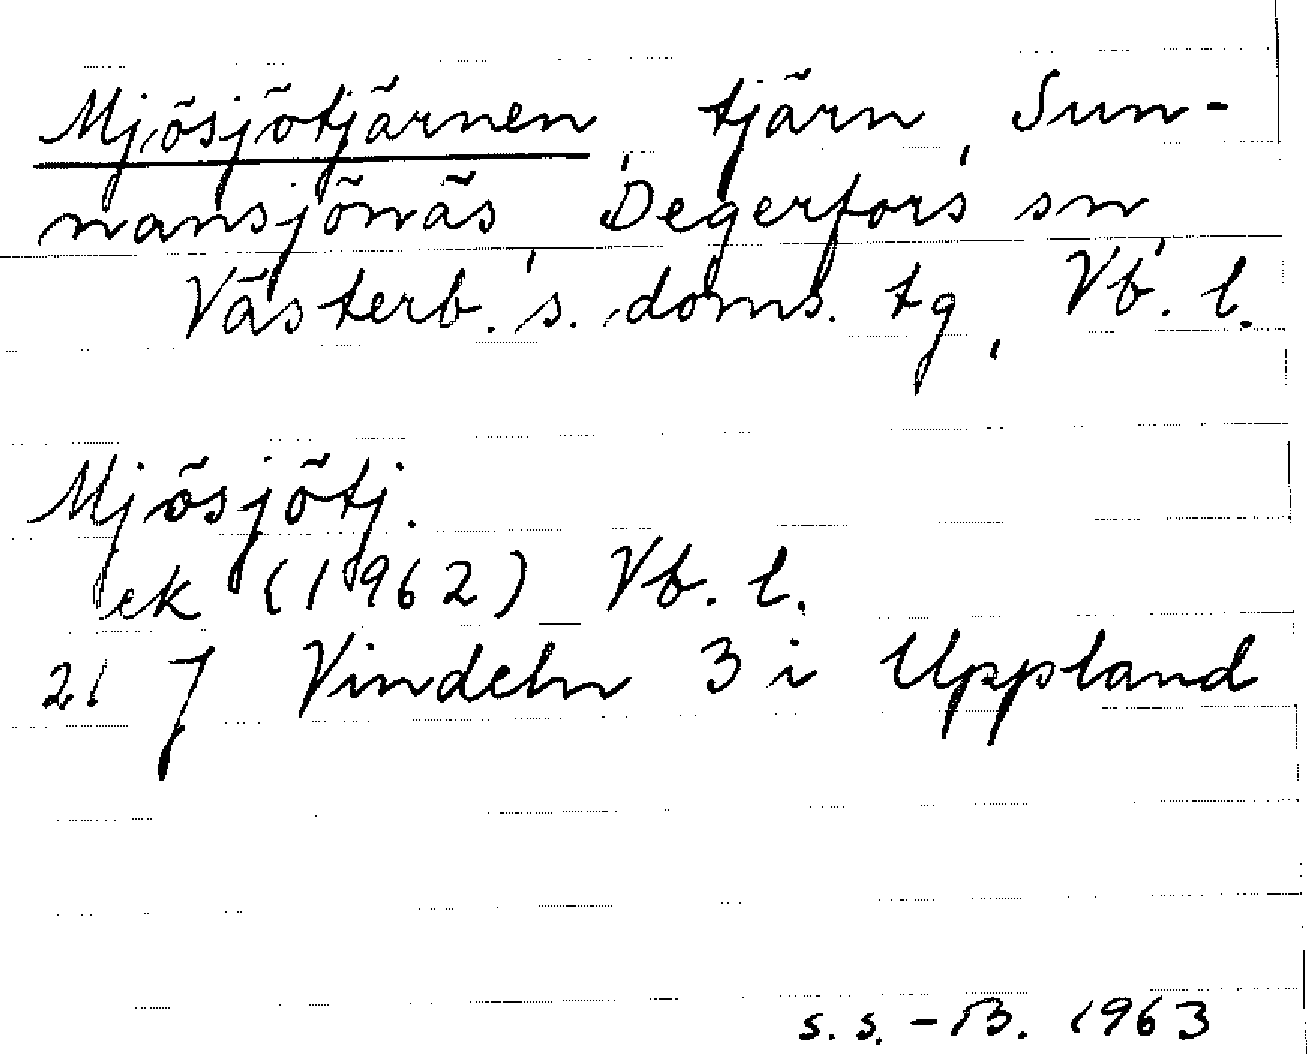 Mjösjötjärnen, tjärn, Sun-
nansjönäs, Degerfors sn,
Västerb. s. doms. tg, Vb. l.
Mjösjötj.
ek (1962) Vb. l.
21 J Vindeln 3 i Uppland
s.s.-B. 1963